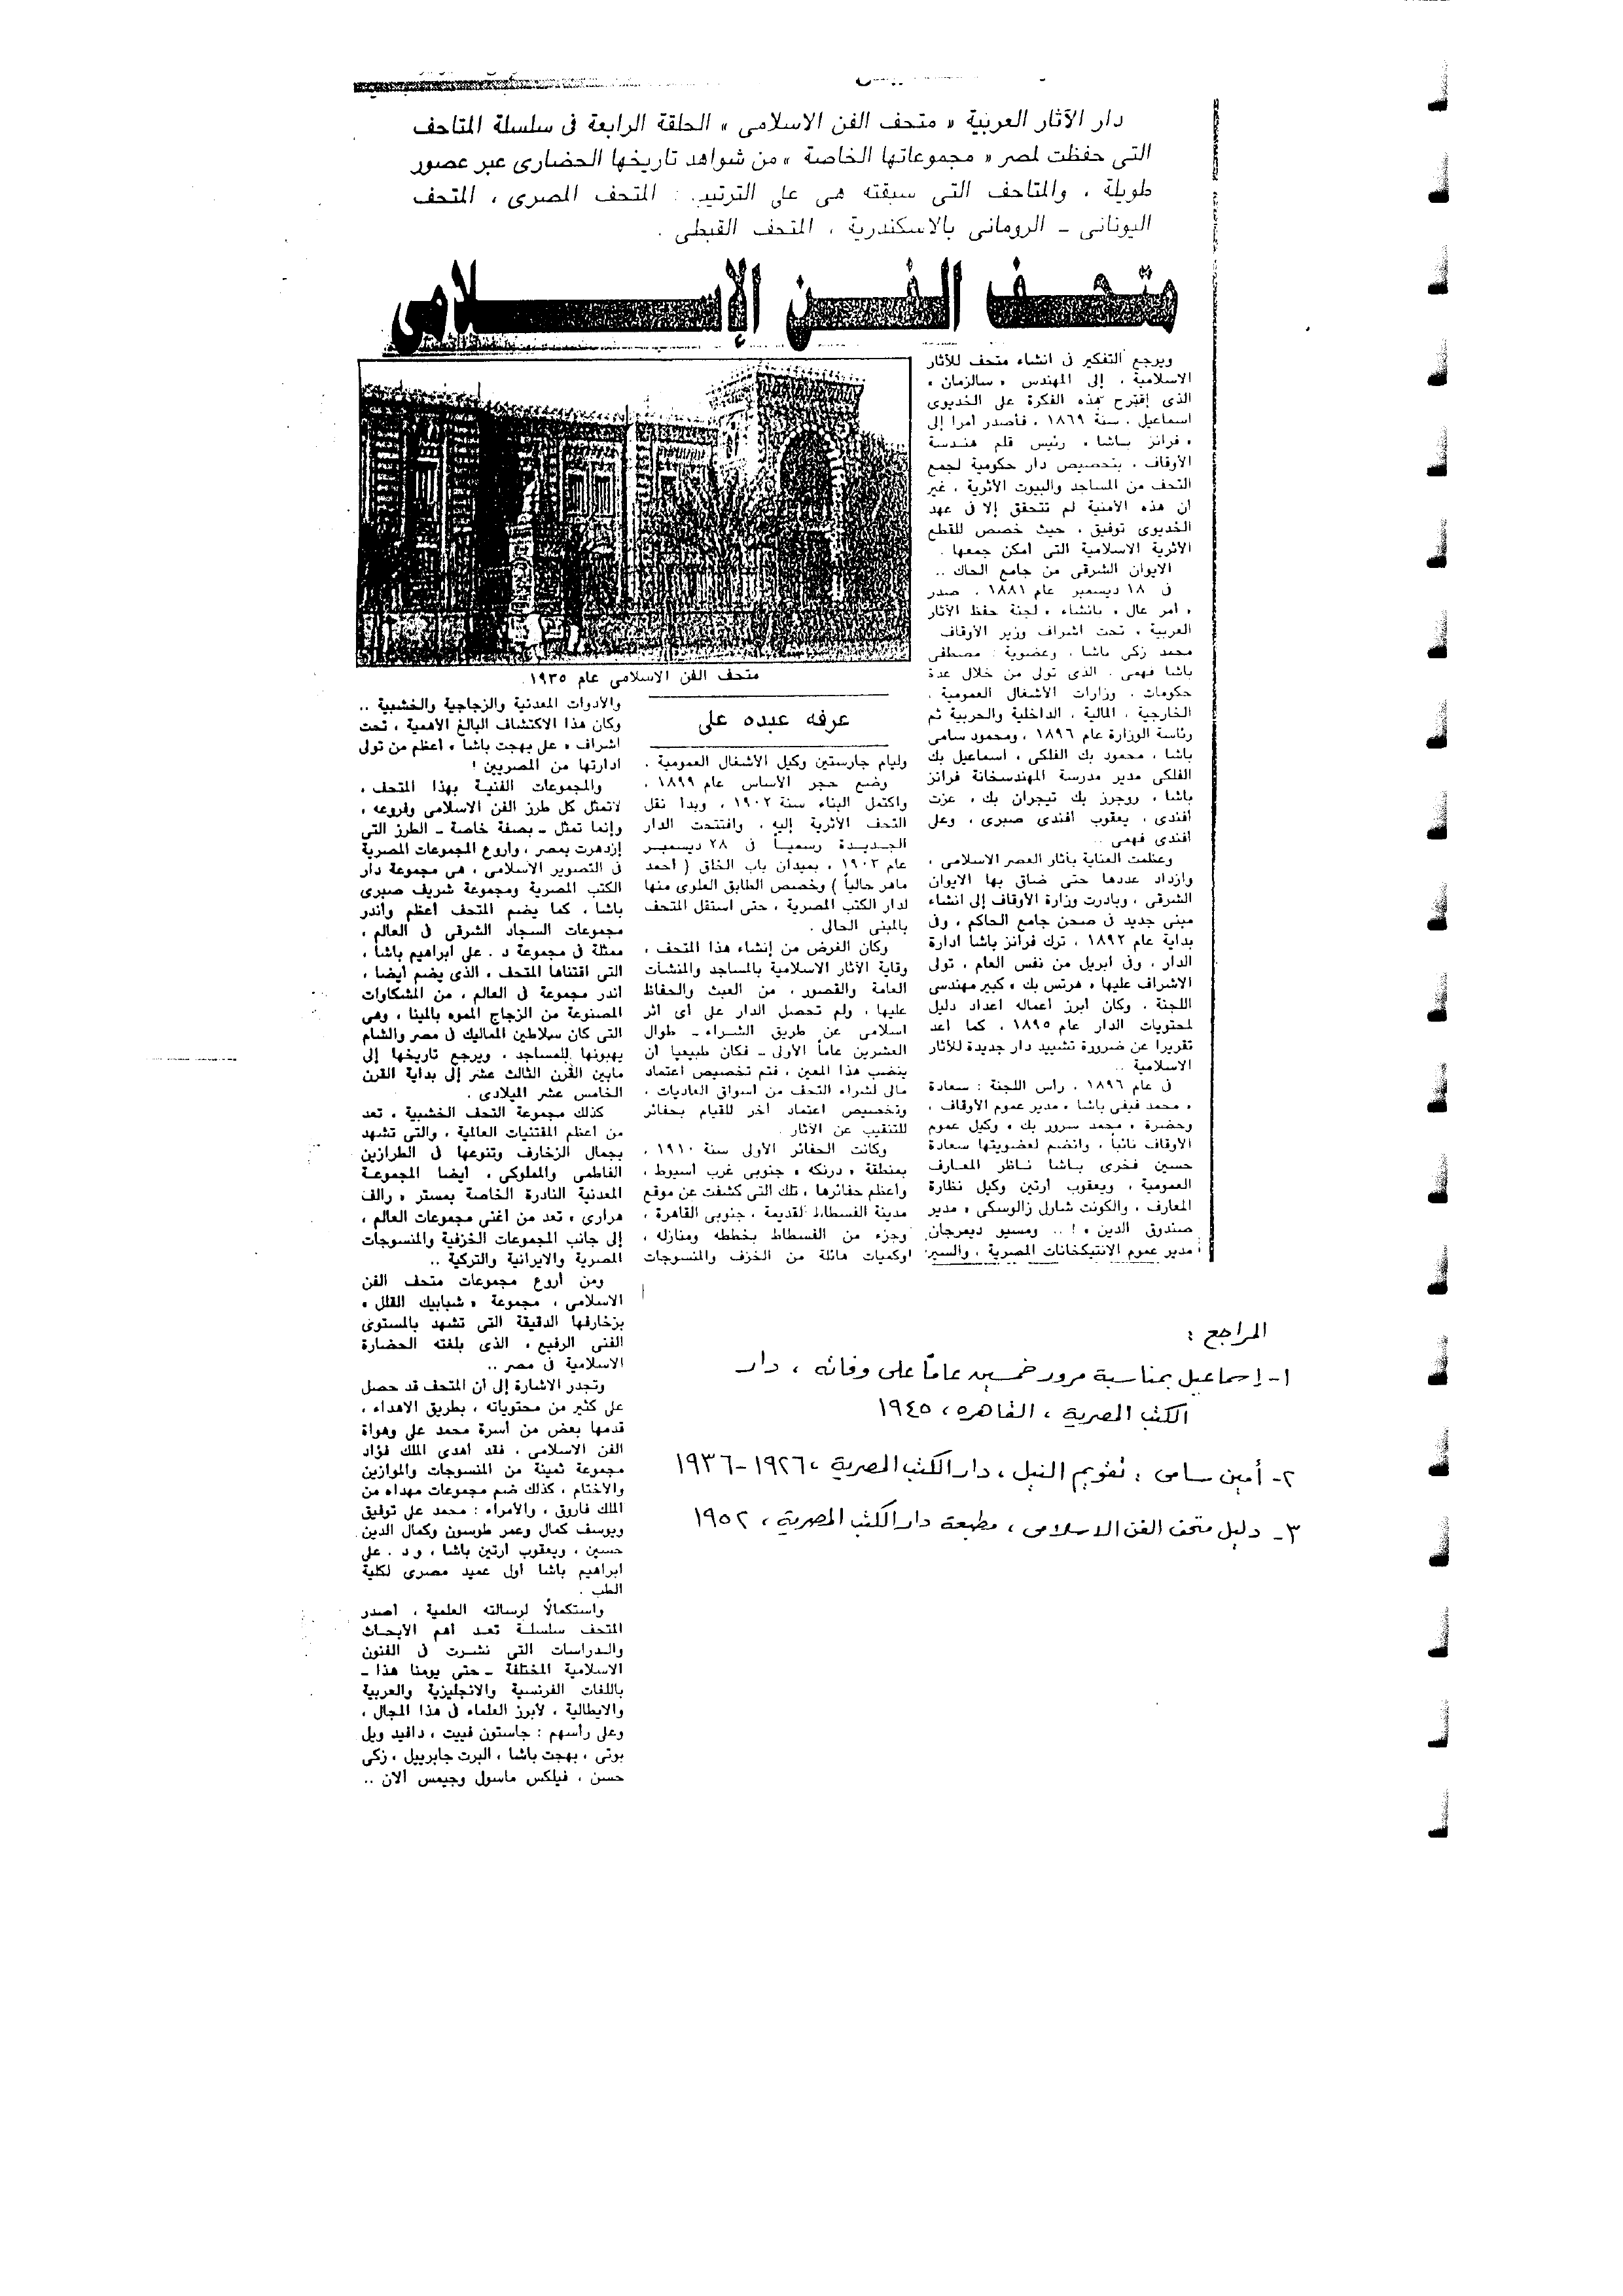 دار الآثار العربية « متحف الفن الاسلامى » الحلقة الرابعة فى سلسلة المتاحف
التى حفظت لمصر « مجموعاتها الخاصة » من شواهد تاريخها الحضارى عبر عصور
طويلة ، والمتاحف التى سبقته هى على الترتيب : المتحف المصرى ، المتحف
اليونانى - الرومانى بالاسكندرية ، المتحف القبطى .
متحف الفن الإسلامى
ويرجع التفكير فى انشاء متحف للآثار
الاسلامية ، إلى المهندس « سالزمان »
الذى إقترح هذه الفكرة على الخديوى
اسماعيل ، سنة ١٨٦٩ ، فأصدر امرا إلى
« فرانز باشا » رئيس قلم هندسة
الأوقاف ، بتخصيص دار حكومية لجمع
التحف من المساجد والبيوت الأثرية ، غير
ان هذه الأمنية لم تتحقق إلا فى عهد
الخديوى توفيق ، حيث خصص للقطع
الأثرية الاسلامية التى امكن جمعها .
الايوان الشرقى من جامع الحاك ..
فى ١٨ ديسمبر عام ١٨٨١ ، صدر
« امر عال » بانشاء « لجنة حفظ الآثار
العربية » تحت اشراف وزير الأوقاف
محمد زكى باشا ، وعضوية : مصطفى
باشا فهمى ، الذى تولى من خلال عدة
حكومات ، وزارات الأشغال العمومية ،
الخارجية ، المالية ، الداخلية والحربية ثم
رئاسة الوزارة عام ١٨٩٦ ، ومحمود سامى
باشا ، محمود بك الفلكى ، اسماعيل بك
الفلكى مدير مدرسة المهندسخانة فرانز
باشا ، روجرز بك تيجران بك ، عزت
افندى ، يعقوب افندى صبرى ، وعلى
افندى فهمى ..
وعظمت العناية بآثار العصر الاسلامى ،
وازداد عددها حتى ضاق بها الايوان
الشرقى ، وبادرت وزارة الأوقاف إلى انشاء
مبنى جديد فى صحن جامع الحاكم ، وفى
بداية عام ١٨٩٢ ، ترك فرانز باشا ادارة
الدار ، وفى ابريل من نفس العام ، تولى
الاشراف عليها « هرتس بك » كبير مهندسى
اللجنة ، وكان ابرز اعماله اعداد دليل
لمحتويات الدار عام ١٨٩٥ ، كما اعد
تقريرا عن ضرورة تشييد دار جديدة للآثار
الاسلامية ..
فى عام ١٨٩٦ ، رأس اللجنة : سعادة
« محمد فيفى باشا » مدير عموم الأوقاف ،
وحضرة « محمد سرور بك » وكيل عموم
الأوقاف نائبا ، وانضم لعضويتها سعادة
حسين فخرى باشا ناظر المعارف
العمومية ، ويعقوب ارتين وكيل نظارة
المعارف ، والكونت شارل زالوسكى « مدير
صندوق الدين » ! .. ومسيو ديمرجان
مدير عموم الانتيكخانات المصرية ، والسير
متحف الفن الاسلامى عام ١٩٣٥
عرفه عبده على
وليام جارستين وكيل الأشغال العمومية .
وضع حجر الأساس عام ١٨٩٩ ،
واكتمل البناء سنة ١٩٠٢ ، وبدا نقل
التحف الأثرية إليه ، وافتتحت الدار
الجديدة رسمياً فى ٢٨ ديسمبر
عام ١٩٠٣ ، بميدان باب الخلق ( أحمد
ماهر حالياً ) وخصص الطابق العلوى منها
لدار الكتب المصرية ، حتى استقل المتحف
بالمبنى الحالى .
وكان الغرض من إنشاء هذا المتحف ،
وقاية الآثار الاسلامية بالمساجد والمنشآت
العامة والقصور ، من العبث والحفاظ
عليها ، ولم تحصل الدار على أى اثر
اسلامى عن طريق الشراء - طوال
العشرين عاماً الأولى - فكان طبيعيا ان
ينضب هذا المعين ، فتم تخصيص اعتماد
مالى لشراء التحف من اسواق العاديات ،
وتخصيص اعتماد آخر للقيام بحفائر
للتنقيب عن الآثار .
وكانت الحفائر الأولى سنة ١٩١٠ ،
بمنطقة « درنكه » جنوبى غرب اسيوط ،
واعظم حفائرها ، تلك التى كشفت عن موقع
مدينة الفسطاط القديمة ، جنوبى القاهرة ،
وجزء من الفسطاط بخططه ومنازله ،
وكميات هائلة من الخزف والمنسوجات
والأدوات المعدنية والزجاجية والخشبية ..
وكان هذا الاكتشاف البالغ الأهمية ، تحت
اشراف « على بهجت باشا » اعظم من تولى
ادارتها من المصريين !
والمجموعات الفنية بهذا المتحف ،
لاتمثل كل طرز الفن الاسلامى وفروعه ،
وإنما تمثل - بصفة خاصة - الطرز التى
إزدهرت بمصر ، واروع المجموعات المصرية
فى التصوير الاسلامى ، هى مجموعة دار
الكتب المصرية ومجموعة شريف صبرى
باشا ، كما يضم المتحف اعظم وأندر
مجموعات السجاد الشرقى فى العالم ،
ممثلة فى مجموعة د . على ابراهيم باشا ،
التى اقتناها المتحف ، الذى يضم أيضا ،
اندر مجموعة فى العالم ، من المشكاوات
المصنوعة من الزجاج المموه بالمينا ، وهى
التى كان سلاطين المماليك فى مصر والشام
يهبونها للمساجد ، ويرجع تاريخها إلى
مابين القرن الثالث عشر إلى بداية القرن
الخامس عشر الميلادى .
كذلك مجموعة التحف الخشبية ، تعد
من اعظم المقتنيات العالمية ، والتى تشهد
بجمال الزخارف وتنوعها فى الطرازين
الفاطمى والمملوكى ، ايضا المجموعة
المعدنية النادرة الخاصة بمستر « رالف
هرارى » تعد من اغنى مجموعات العالم ،
إلى جانب المجموعات الخزفية والمنسوجات
المصرية والايرانية والتركية ..
ومن اروع مجموعات متحف الفن
الاسلامى ، مجموعة « شبابيك القلل »
بزخارفها الدقيقة التى تشهد بالمستوى
الفنى الرفيع ، الذى بلغته الحضارة
الاسلامية فى مصر ..
وتجدر الاشارة إلى أن المتحف قد حصل
على كثير من محتوياته ، بطريق الاهداء ،
قدمها بعض من أسرة محمد على وهواة
الفن الاسلامى ، فقد اهدى الملك فؤاد
مجموعة ثمينة من المنسوجات والموازين
والأختام ، كذلك ضم مجموعات مهداه من
الملك فاروق ، والأمراء : محمد على توفيق
ويوسف كمال وعمر طوسون وكمال الدين
حسين ، ويعقوب ارتين باشا ، و د . على
ابراهيم باشا اول عميد مصرى لكلية
الطب .
واستكمالًا لرسالته العلمية ، اصدر
المتحف سلسلة تعد اهم الأبحاث
والدراسات التى نشرت فى الفنون
الاسلامية المختلفة - حتى يومنا هذا -
باللغات الفرنسية والانجليزية والعربية
والايطالية ، لأبرز العلماء فى هذا المجال ،
وعلى رأسهم : جاستون فييت ، دافيد ويل
بوتى ، بهجت باشا ، البرت جابرييل ، زكى
حسن ، فيلكس ماسول وجيمس آلان ..
المراجع :
١- إسماعيل بمناسبة مرور خمسين عاماً على وفاته ، دار
الكتب المصرية ، القاهره ، ١٩٤٥
٢- أمين سامى : تقويم النيل ، دار الكتب المصرية ، ١٩٢٦-١٩٣٦
٣- دليل متحف الفن الاسلامى ، مطبعة دار الكتب المصرية ، ١٩٥٢